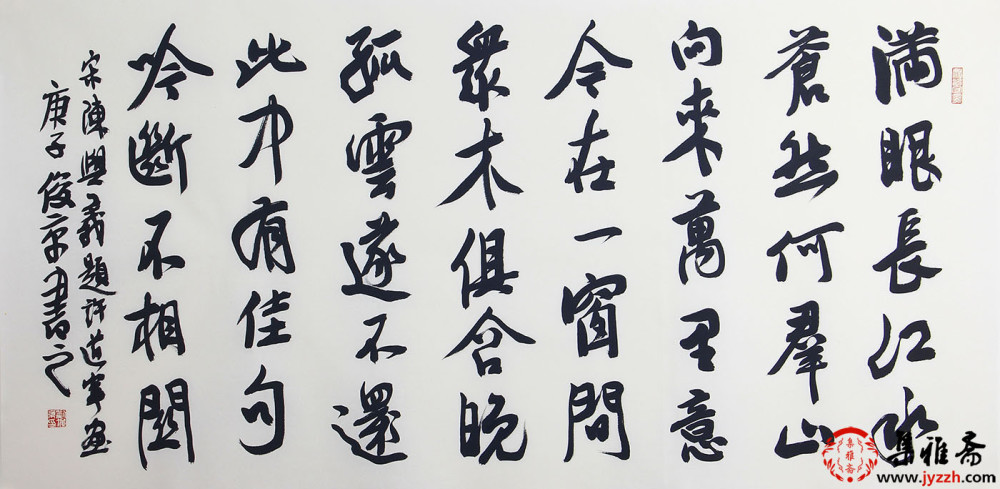 滿眼長江水
蒼然何羣山
向來萬里意
今在一窗間
衆木俱含晚
孤雲遂不還
此中有佳句
吟斷不相關
宋陳與義題許道寧畫
庚子俊京書之
集雅斋
集雅斋
www.jyzzh.com